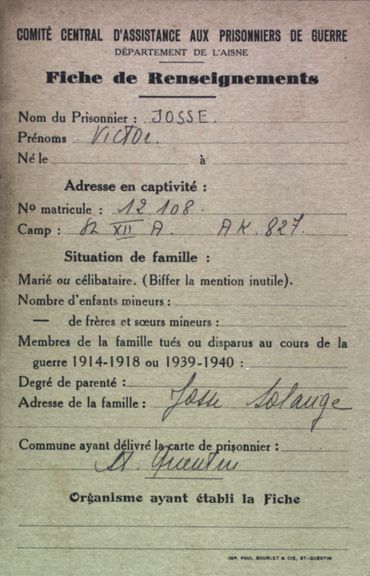 COMITÉ CENTRAL D'ASSISTANCE AUX PRISONNIERS DE GUERRE
DÉPARTEMENT DE L'AISNE
Fiche de Renseignements
Nom du Prisonnier : JOSSE.
Prénoms VICTOR.
Né le à
Adresse en captivité :
No matricule : 12 108.
Camp : St XII A. AK. 827.
Situation de famille :
Marié ou célibataire. (Biffer la mention inutile).
Nombre d'enfants mineurs :
— de frères et sœurs mineurs :
Membres de la famille tués ou disparus au cours de la
guerre 1914-1918 ou 1939-1940 :
Degré de parenté :
Adresse de la famille : Josse Solange
Commune ayant délivré la carte de prisonnier :
St. Quentin
Organisme ayant établi la Fiche
IMP. PAUL BOURLET & CIE, ST-QUENTIN